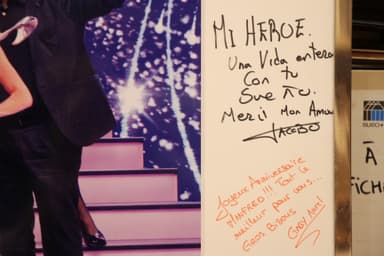 MI HEROE.
Una Vida entera
Con tu
Sueño.
Merci Mon Amour
JACOBO
Joyeux Anniversaire
MANFRED !!! Tout le
meilleur pour vous...
Gros Bisous
À
FICH